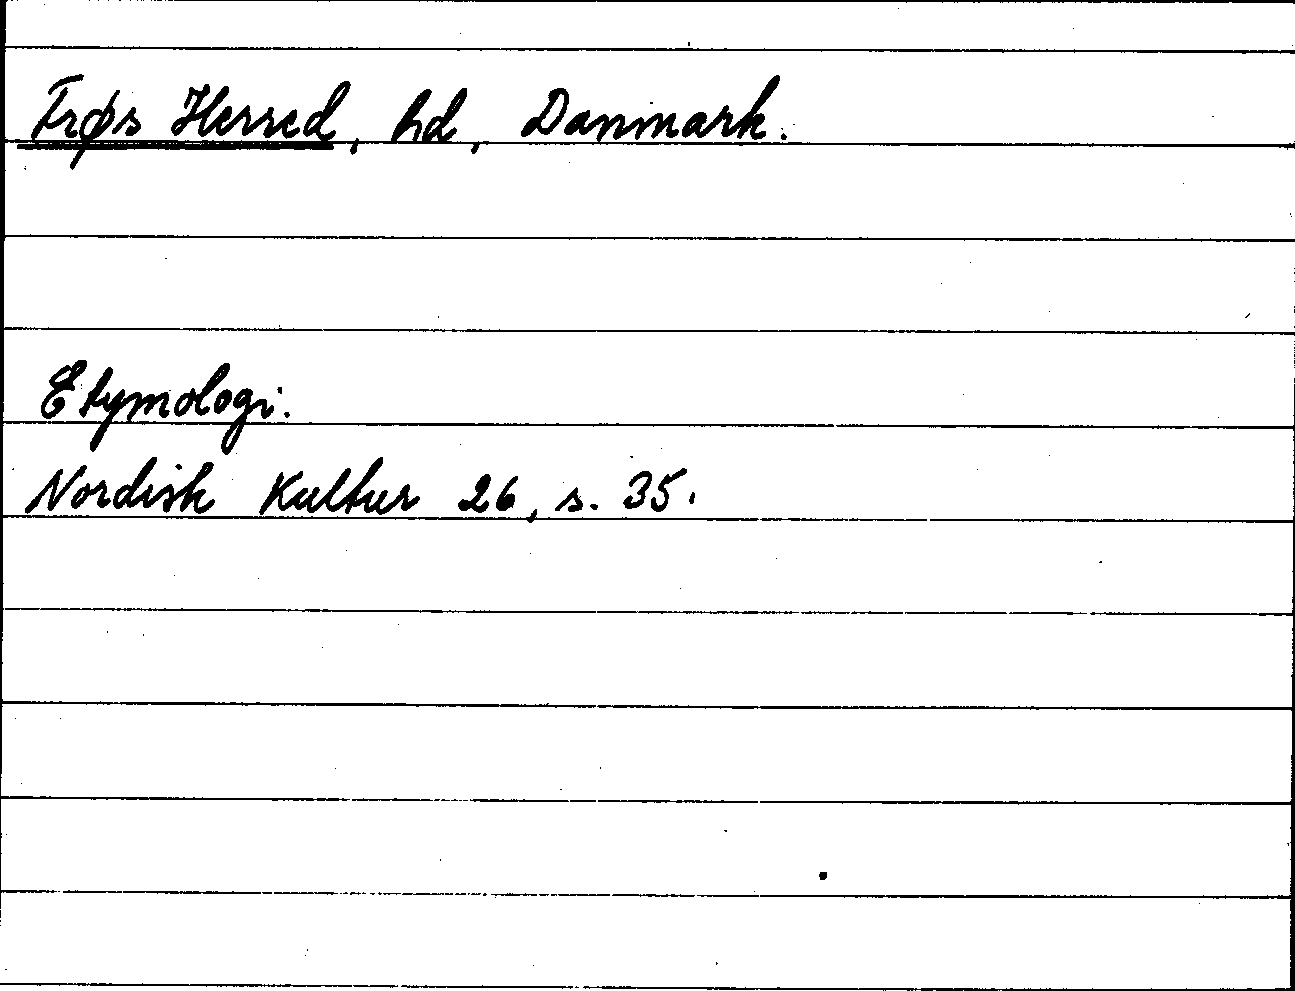 Frøs Herred, hd, Danmark.
Etymologi.
Nordisk Kultur 26, s. 35.